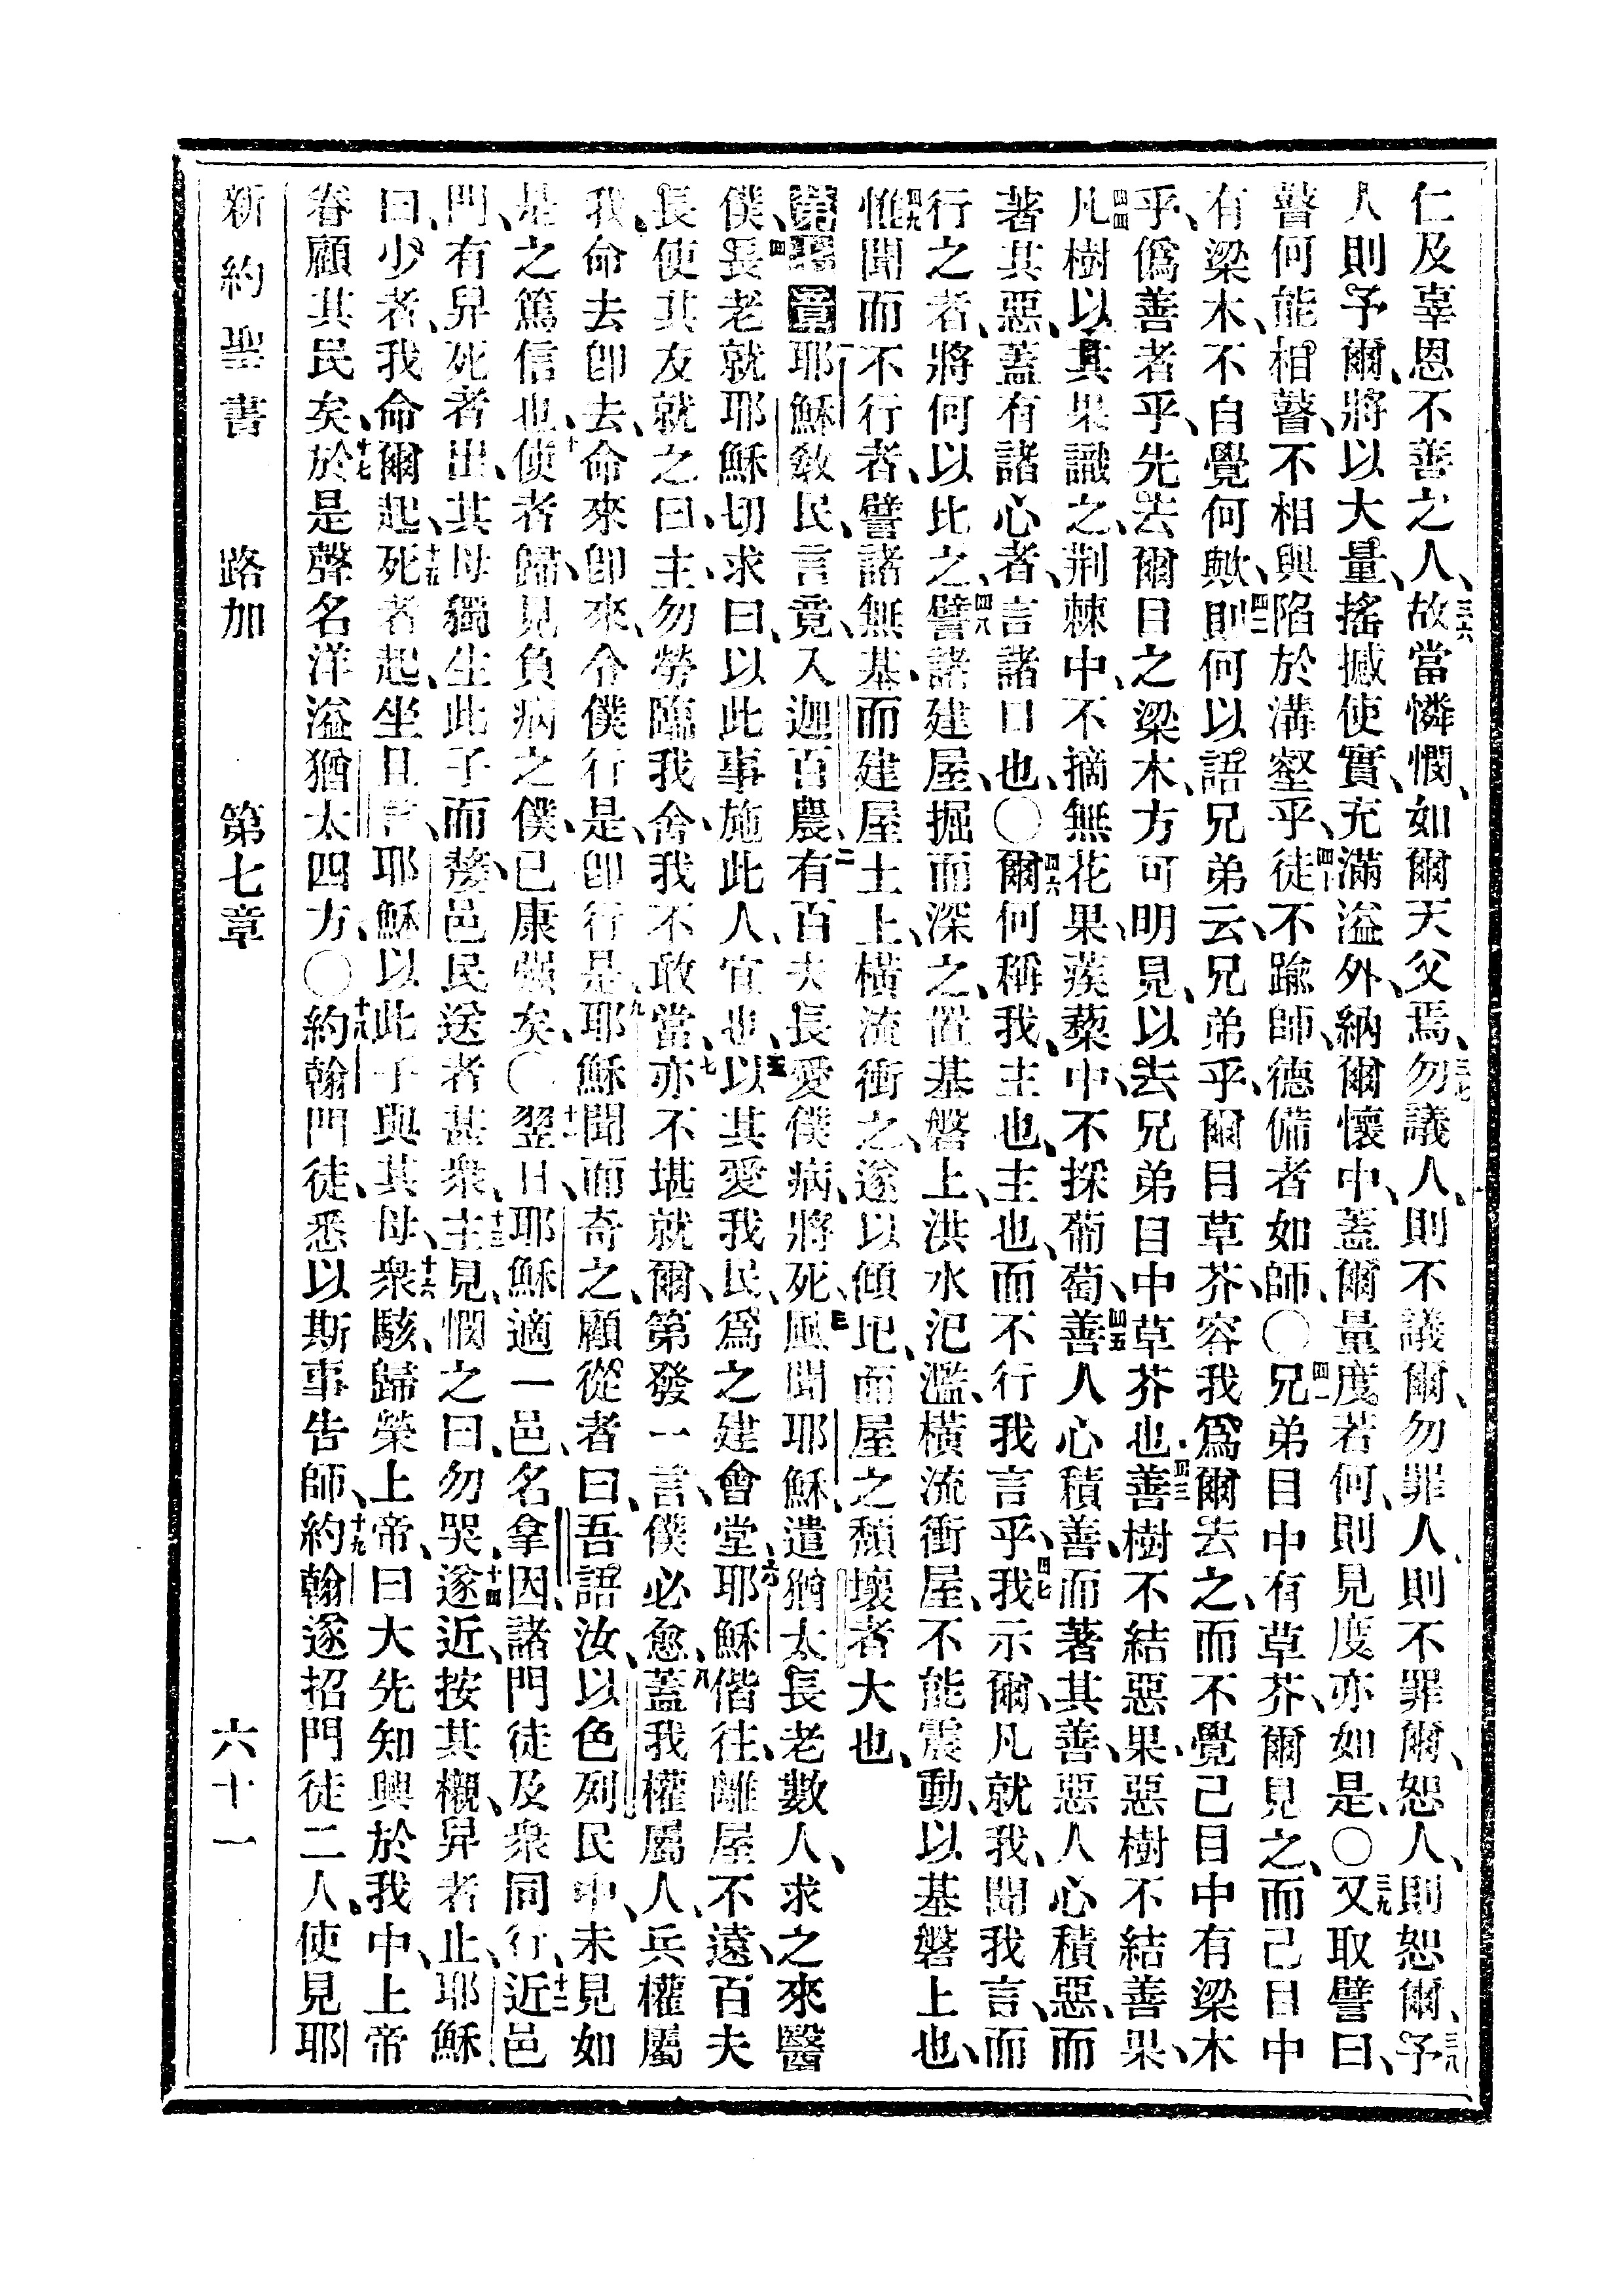 仁及辜恩不善之人、三六故當憐憫、如爾天父焉、三七勿議人、則不議爾、勿罪人、則不罪爾、恕人、則恕爾、三八予
人則予爾、將以大量、搖撼使實、充滿溢外、納爾懷中、蓋爾量度若何、則見度亦如是、〇三九又取譬曰、
瞽何能相瞽、不相與陷於溝壑乎、四十徒不踰師、德備者如師、〇四一兄弟目中有草芥、爾見之、而己目中
有梁木、不自覺何歟、四二則何以語兄弟云、兄弟乎、爾目草芥、容我爲爾去之、而不覺己目中有梁木
乎、僞善者乎、先去爾目之梁木、方可明見、以去兄弟目中草芥也、四三善樹不結惡果、惡樹不結善果、
四四凡樹以其果識之、荆棘中、不摘無花果、蒺藜中、不採葡萄、四五善人心積善、而著其善、惡人心積惡、而
著其惡、蓋有諸心者、言諸口也、〇四六爾何稱我、主也、主也、而不行我言乎、四七我示爾、凡就我、聞我言、而
行之者、將何以比之、四八譬諸建屋、掘而深之、置基磐上、洪水氾濫、橫流衝屋、不能震動、以基磐上也、
四九惟聞而不行者、譬諸無基、而建屋土上、橫流衝之、遂以傾圯、而屋之頹壞者大也、
第七章耶穌敎民、言竟、入迦百農、二有百夫長愛僕病、將死、三風聞耶穌、遣猶太長老數人、求之來醫
僕、四長老就耶穌、切求曰、以此事施此人、宜也、五以其愛我民、爲之建會堂、六耶穌偕往、離屋不遠、百夫
長使其友就之曰、主、勿勞臨我舍、我不敢當、七亦不堪就爾、第發一言、僕必愈、八蓋我權屬人、兵權屬
我、命去卽去、命來卽來、令僕行是、卽行是、九耶穌聞而奇之、顧從者曰、吾語汝、以色列民中、未見如
是之篤信也、十使者歸、見負病之僕、已康强矣、〇十一翌日、耶穌適一邑、名拿因、諸門徒及衆同行、十二近邑
門、有舁死者出、其母獨生此子而嫠、邑民送者甚衆、十三主見、憫之曰、勿哭、十四遂近、按其櫬、舁者止、耶穌
曰、少者、我命爾起、十五死者起、坐且言、耶穌以此子與其母、十六衆駭、歸榮上帝、曰大先知興於我中、上帝
眷顧其民矣、十七於是聲名洋溢猶太四方、〇十八約翰門徒、悉以斯事告師、十九約翰遂招門徒二人、使見耶
新約聖書　路加　第七章　六十一